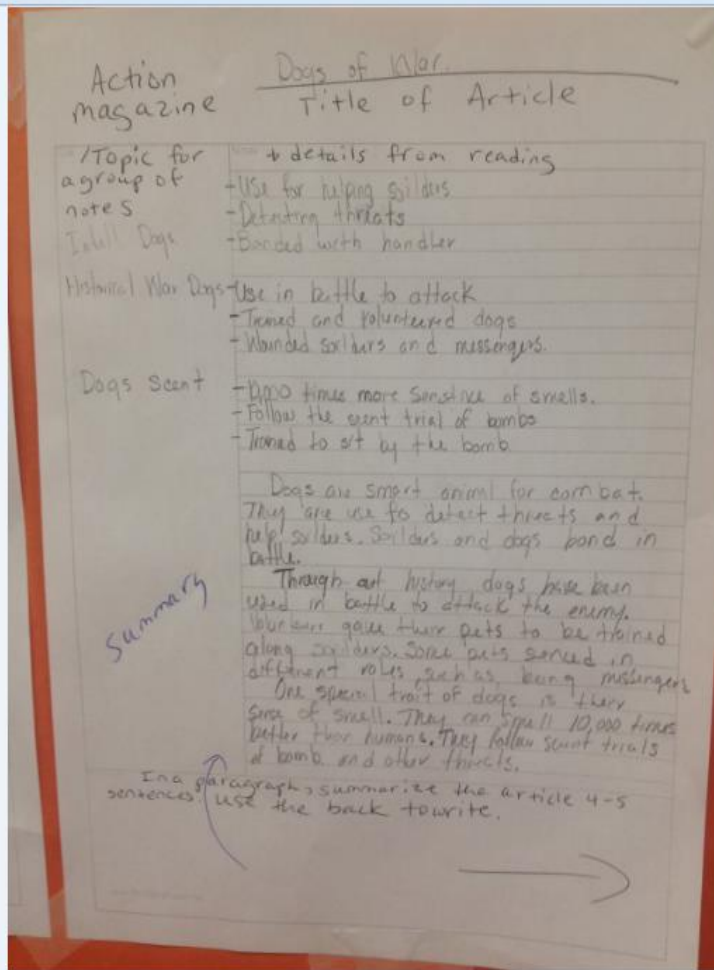 Action
magazine
Dogs of War.
Title of Article
/Topic for
a group of
notes
+ details from reading
- Use for helping soilders
- Detecting threats
Intell Dogs - Bonded with handler
Historical War Dogs - Use in battle to attack
- Trained and volunteered dogs
- Wounded soilders and messengers.
Dogs scent - times more sensitive of smells.
- Follow the scent trial of bombs
- Trained to sit by the bomb
Dogs are smart animal for combat.
They are use to detect threats and
help soilders. Soilders and dogs bond in
battle.
Through out history, dogs have been
used in battle to attack the enemy.
gave their pets to be trained
along soilders. Some pets served in
different roles, such as being messengers
One special trait of dogs is their
sense of smell. They can smell 10,000 times
better than humans. They follow scent trials
of bomb and other threats.
Summary
In a paragraph, summarize the article 4-5
sentences. use the back to write.